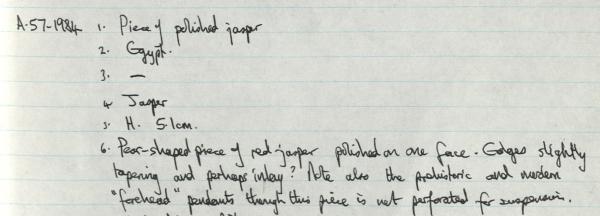 A.57-1984 1. Piece of polished jasper
2. Egypt.
3. —
4. Jasper
5. H. 5.1cm.
6. Pear-shaped piece of red jasper polished on one face. Edges slightly
tapering and perhaps 'inlay'? Note also the prehistoric and modern
"forehead" pendants though this piece is not perforated for suspension.